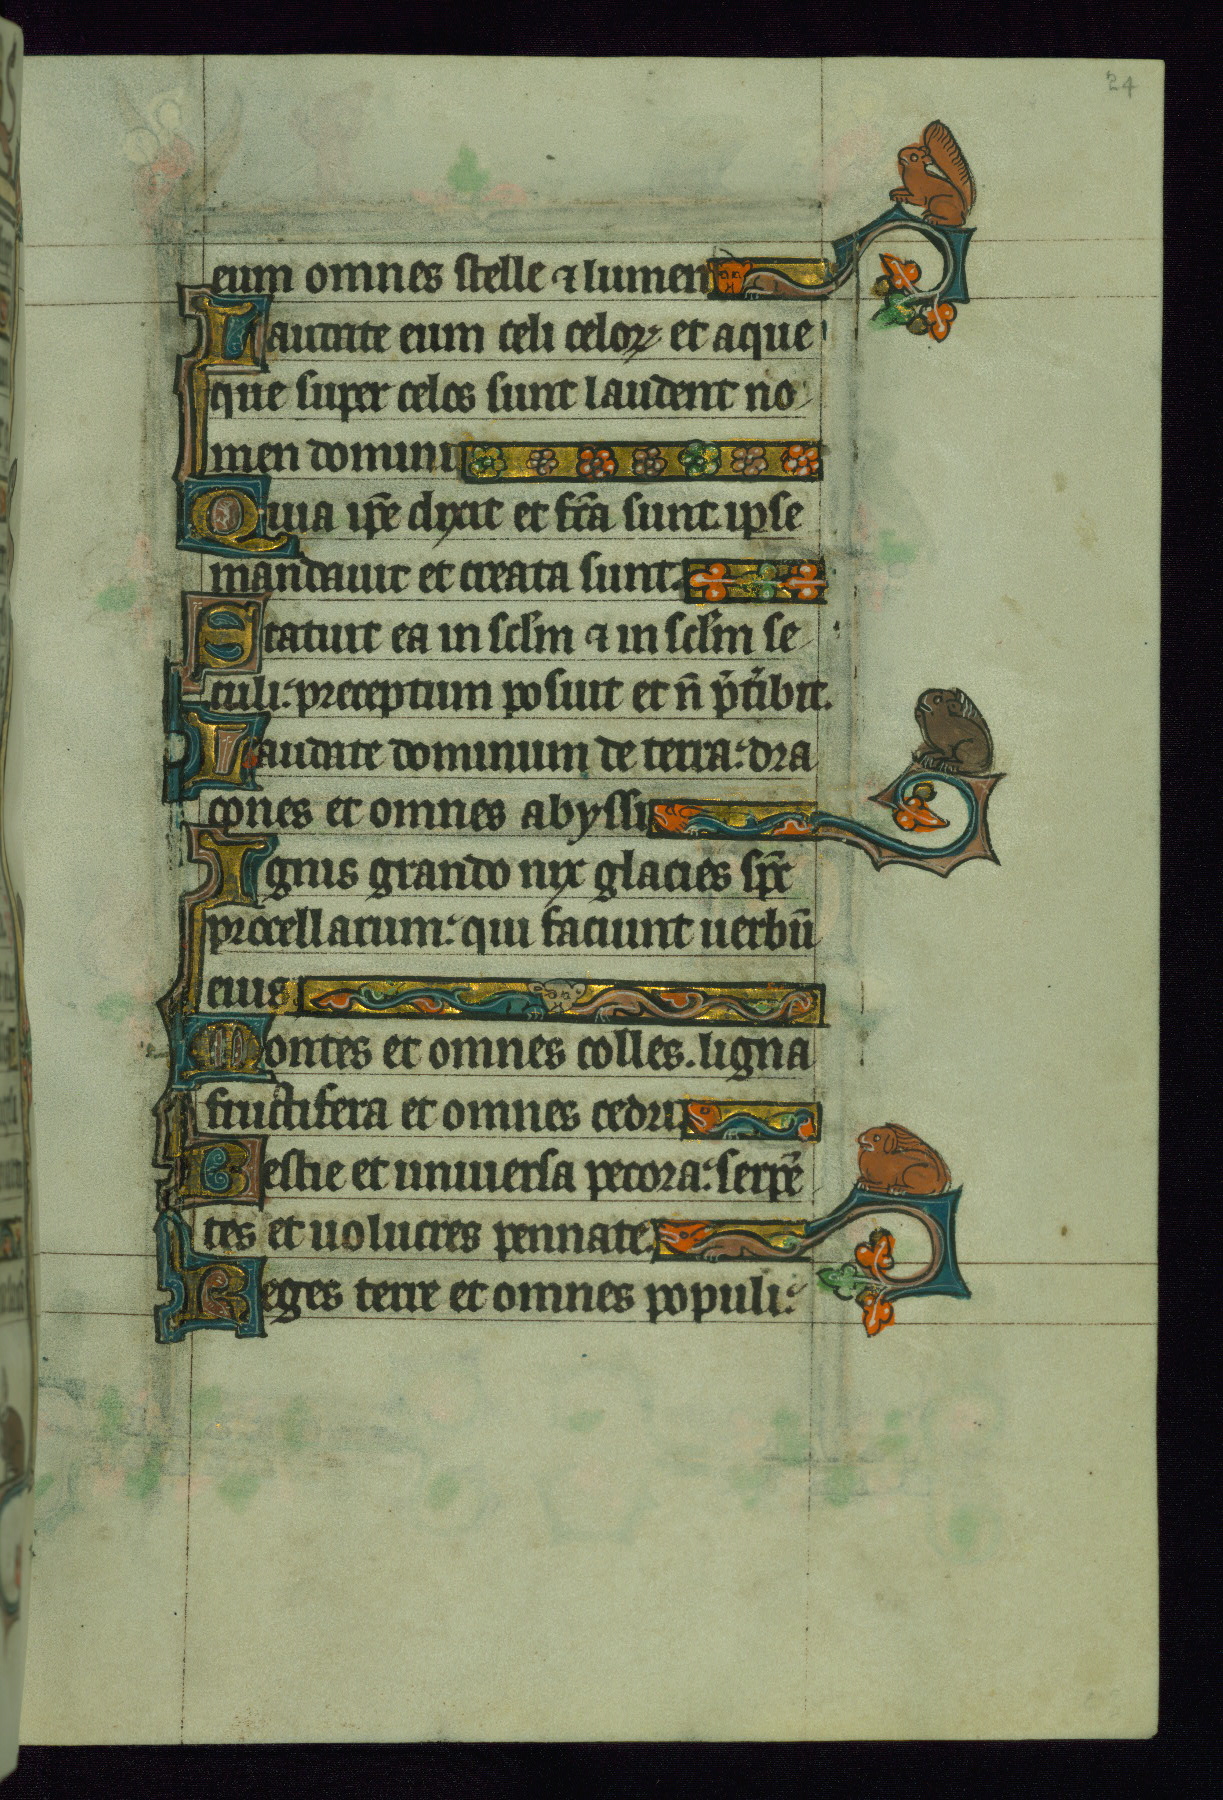 24
eum omnes stelle ⁊ lumen
Laudate eum celi celoꝝ et aque
que super celos sunt laudent no
men domini
Quia ip̄e dixit et fc̄a sunt. ipse
mandauit et creata sunt.
Statuit ea in sc̄lm ⁊ in sc̄lm se
culi: preceptum posuit et n̄ p̄t̾ibit.
Laudate dominum de terra: dra
cones et omnes abyssi
Ignis grando nix glacies sp̄c
procellarum: qui faciunt uerbū
eius
Montes et omnes colles. ligna
fructifera et omnes cedri
Bestie et uniuersa pecora: serpē
tes et uolucres pennate
Reges terre et omnes populi: